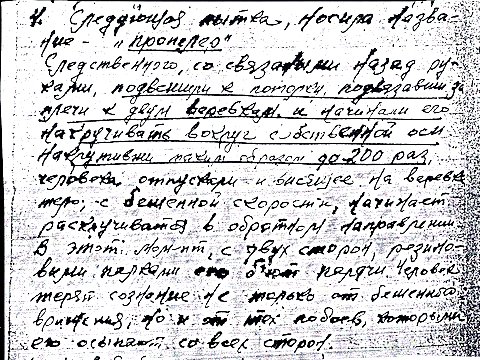 4. Следующая пытка, носила назва-
ние - "пропелер"
Следственного, со связаными назад ру-
ками, подвешили к потолку, подвязавши за
плечи к двум веревкам. и начинали его
накручивать вокруг собственной оси
Накрутивши таким образом до 200 раз,
человека отпускали и висящее на веревке
тело, с бешенной скоростью, начинает
раскручиватся в обратном направлении.
В этот мом-нт, с двух сторон, резино-
выми палками его бьют палачи. Человек
теряет сознание не только от бешенного
вращения, но и от тех побоев, которыми
его осыпают со всех сторон.